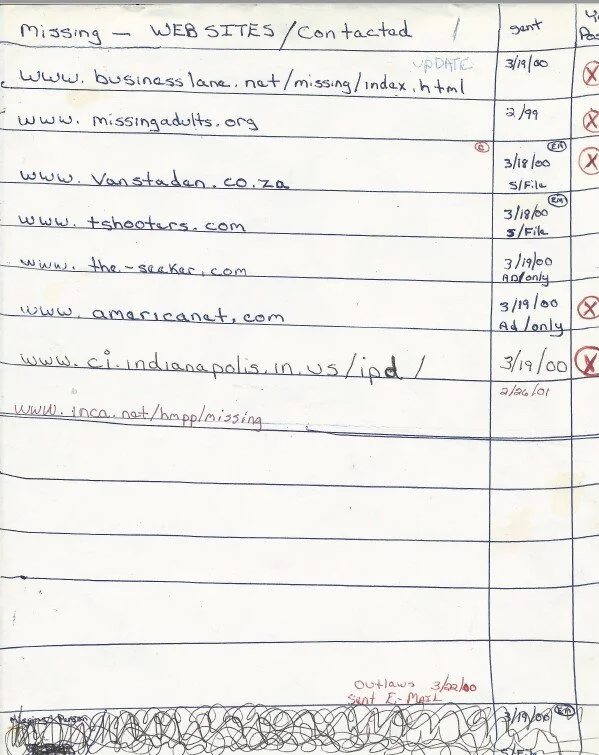 Missing — WEB SITES / Contacted 1 Sent
UPDATE
www.businesslane.net/missing/index.html 3/19/00 X
www.missingadults.org 2/99 X
C EM
www.vanstaden.co.za 3/18/00 X
S/File
EM
www.tshooters.com 3/18/00
S/File
www.the-seeker.com 3/19/00
AD/only
www.americanet.com 3/19/00 X
Ad/only
www.ci.indianapolis.in.us/ipd/ 3/19/00 X
2/26/01
www.inca.net/hmpp/missing
Outlaws 3/22/00
Sent E-MAIL
Missing Person 3/19/00 EM
S/File